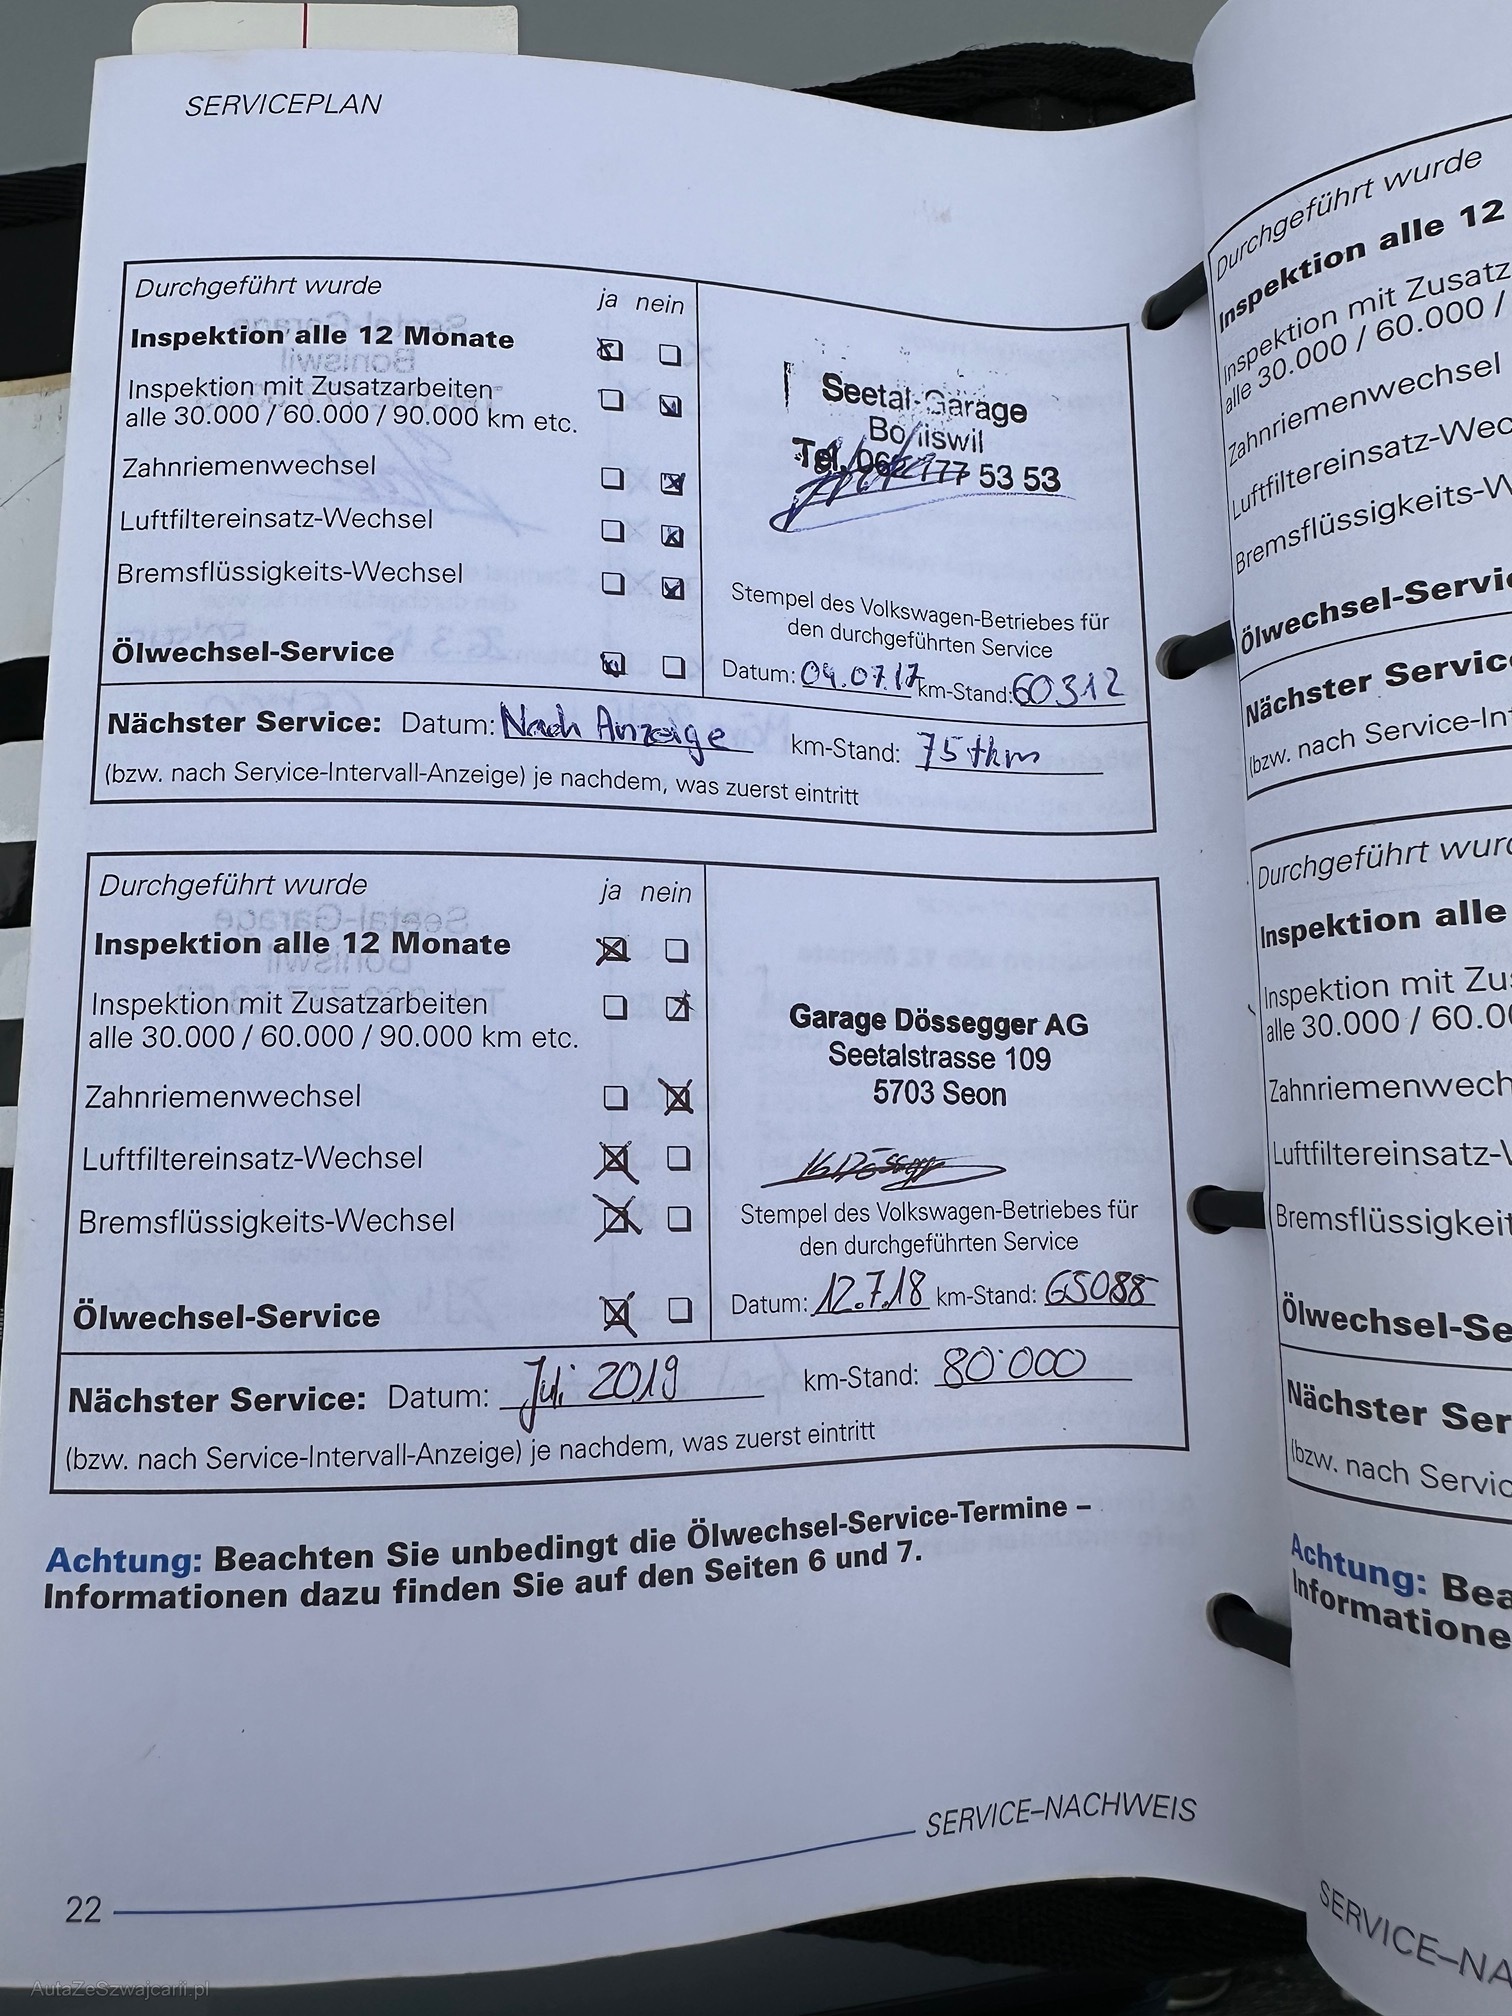 SERVICEPLAN
Durchgeführt wurde
ja nein
Inspektion alle 12 Monate
Inspektion mit Zusatzarbeiten
alle 30.000 / 60.000 / 90.000 km etc.
Zahnriemenwechsel
Luftfiltereinsatz-Wechsel
Bremsflüssigkeits-Wechsel
Ölwechsel-Service
Seetal-Garage
Boniswil
Tel. 062 777 53 53
Stempel des Volkswagen-Betriebes für
den durchgeführten Service
Datum: 04.07.17 km-Stand: 60312
Nächster Service: Datum: Nach Anzeige km-Stand: 75 tkm
(bzw. nach Service-Intervall-Anzeige) je nachdem, was zuerst eintritt
Durchgeführt wurde
ja nein
Inspektion alle 12 Monate
Inspektion mit Zusatzarbeiten
alle 30.000 / 60.000 / 90.000 km etc.
Zahnriemenwechsel
Luftfiltereinsatz-Wechsel
Bremsflüssigkeits-Wechsel
Ölwechsel-Service
Garage Dössegger AG
Seetalstrasse 109
5703 Seon
Stempel des Volkswagen-Betriebes für
den durchgeführten Service
Datum: 12.7.18 km-Stand: 65088
Nächster Service: Datum: Juli 2019 km-Stand: 80'000
(bzw. nach Service-Intervall-Anzeige) je nachdem, was zuerst eintritt
Achtung: Beachten Sie unbedingt die Ölwechsel-Service-Termine –
Informationen dazu finden Sie auf den Seiten 6 und 7.
SERVICE–NACHWEIS
22
Durchgeführt wurde
Inspektion alle 12
Inspektion mit Zusatz
alle 30.000 / 60.000 /
Zahnriemenwechsel
Luftfiltereinsatz-Wec
Bremsflüssigkeits-W
Ölwechsel-Servi
Nächster Servic
(bzw. nach Service-Int
Durchgeführt wur
Inspektion alle
Inspektion mit Zu
alle 30.000 / 60.0
Zahnriemenwech
Luftfiltereinsatz-
Bremsflüssigkeit
Ölwechsel-Se
Nächster Ser
(bzw. nach Servic
Achtung: Bea
Informatione
SERVICE–NA
AutaZeSzwajcarii.pl